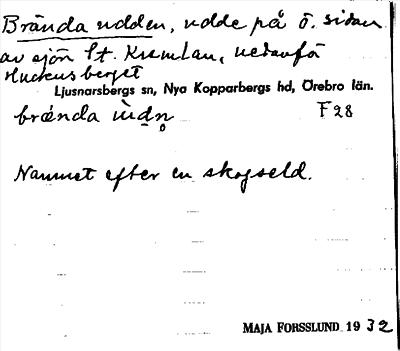 Brända udden, udde på Ö. sidan
av sjön St. Kumlan, nedanför
Huckusberget
Ljusnarsbergs sn, Nya Kopparbergs hd, Örebro län.
brända ùdn̥ F28
Namnet efter en skogseld.
MAJA FORSSLUND 1932